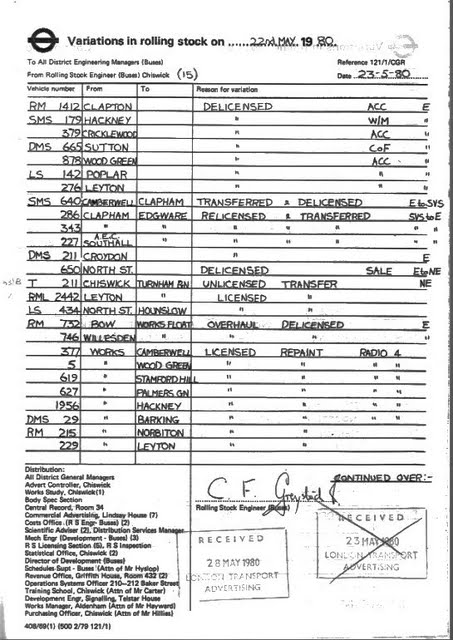 Variations in rolling stock on ......22nd MAY. 1980.
To All District Engineering Managers (Buses)
Reference 121/1/CGR
From Rolling Stock Engineer (Buses) Chiswick (15)
Date 23-5-80
Vehicle number From To Reason for variation
RM 1412 CLAPTON DELICENSED ACC E
SMS 179 HACKNEY " W/M "
379 CRICKLEWOOD " ACC "
DMS 665 SUTTON " CoF "
878 WOOD GREEN " ACC "
LS 142 POPLAR " " "
276 LEYTON " " "
SMS 640 CAMBERWELL CLAPHAM TRANSFERRED & DELICENSED E to SVS
286 CLAPHAM EDGWARE RELICENSED & TRANSFERRED SVS to E
343 " " " " " "
227 A.E.C. SOUTHALL " " " " "
DMS 211 CROYDON E
650 NORTH ST. DELICENSED SALE E to NE
T 211 CHISWICK TURNHAM GN UNLICENSED TRANSFER NE
RML 2442 LEYTON LICENSED "
LS 434 NORTH ST. HOUNSLOW " "
RM 732 BOW WORKS FLOAT OVERHAUL DELICENSED E
746 WILLESDEN " " " "
377 WORKS CAMBERWELL LICENSED REPAINT RADIO 4
5 " WOOD GREEN " " " "
619 " STAMFORD HILL " " " "
627 " PALMERS GN " " " "
1956 " HACKNEY " " " "
DMS 29 " BARKING " "
RM 215 " NORBITON " "
229 " LEYTON " "
Distribution:
All District General Managers
Advert Controller, Chiswick
Works Study, Chiswick(1)
Body Spec Section
Central Record, Room 34
Commercial Advertising, Lindsay House (7)
Costs Office (R S Engr- Buses) (2)
Scientific Adviser (2), Distribution Services Manager
Mech Engr (Development - Buses) (3)
R S Licensing Section (5), R S Inspection
Statistical Office, Chiswick (2)
Director of Development (Buses)
Schedules Supt - Buses (Attn of Mr Hyslop)
Revenue Office, Griffith House, Room 432 (2)
Operations Systems Officer 210-212 Baker Street
Training School, Chiswick (Attn of Mr Carter)
Development Engr, Signalling, Telstar House
Works Manager, Aldenham (Attn of Mr Hayward)
Purchasing Officer, Chiswick (Attn of Mr Hillies)
408/69(1) (500 2/79 121/1)
CONTINUED OVER:-
C. F.
Rolling Stock Engineer (Buses)
RECEIVED
28 MAY 1980
LONDON TRANSPORT
ADVERTISING
RECEIVED
23 MAY 1980
LONDON TRANSPORT
ADVERTISING